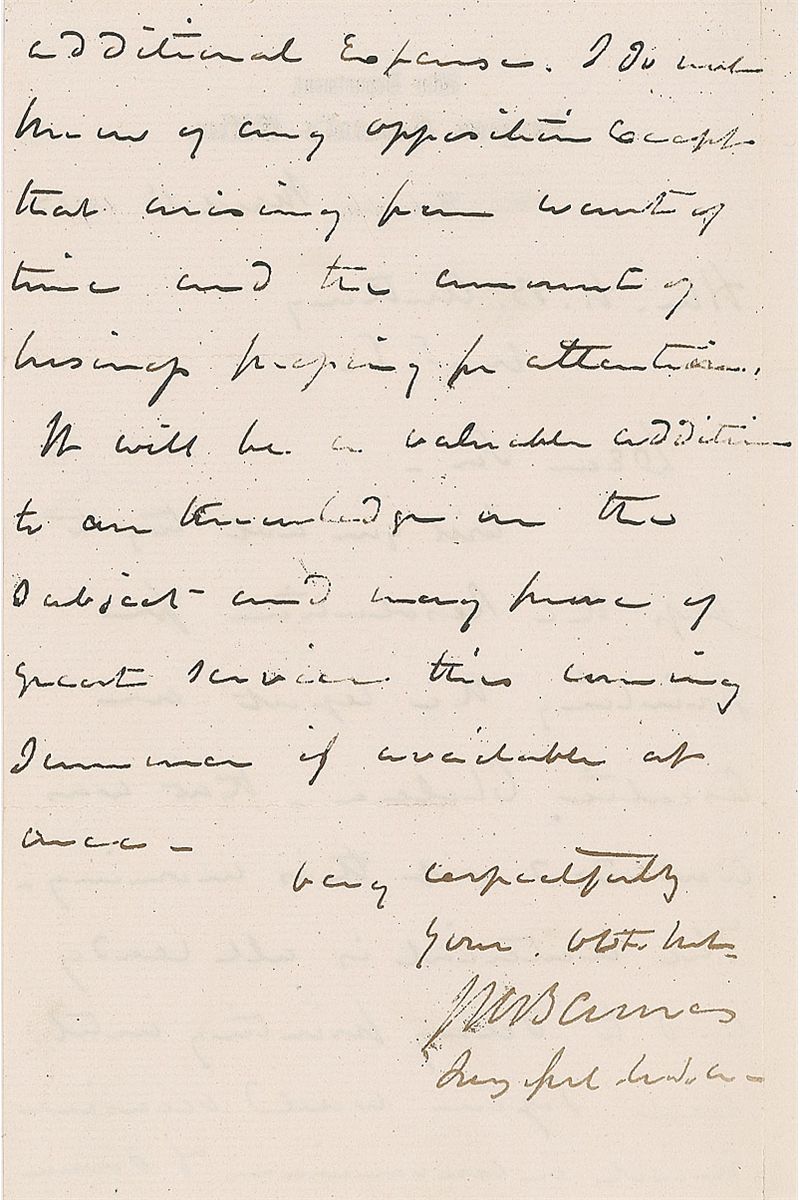 additional Expense. I do not
know of any opposition Except
that arising from want of
time and the amount of
business pressing for attention.
It will be a valuable addition
to our knowledge on the
subject and may prove of
great service this coming
Summer if available at
once –
Very respectfully
Your. obt.
J K Barnes
Surg